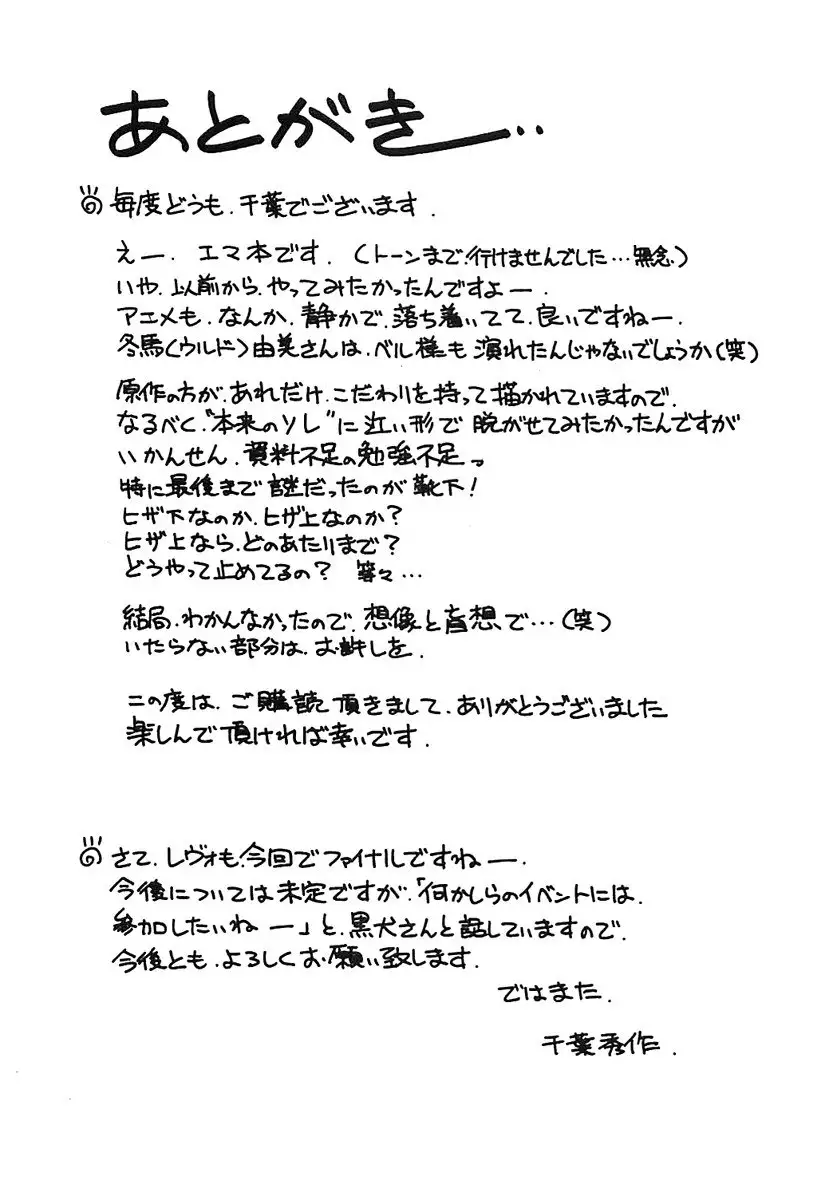 あとがき―‥
毎度どうも、千葉でございます.
えー、エマ本です. (トーンまで、行けませんでした…無念)
いや、以前から、やってみたかったんですよー.
アニメも、なんか、静かで、落ち着いてて、良いですねー.
冬馬(ウルド)由美さんは、ベル様も演れたんじゃないでしょうか(笑)
原作の方が、あれだけ、こだわりを持って描かれていますので、
なるべく、"本来のソレ"に近い形で 脱がせてみたかったんですが
いかんせん、資料不足の勉強不足っ
特に最後まで謎だったのが靴下!
ヒザ下なのか、ヒザ上なのか?
ヒザ上なら、どのあたりまで?
どうやって止めてるの? 等々…
結局、わかんなかったので、想像と盲想で…(笑)
いたらない部分は、お許しを.
この度は、ご購読頂きまして、ありがとうございました
楽しんで頂ければ幸いです.
さて、レヴォも、今回でファイナルですねー.
今後については未定ですが、「何かしらのイベントには、
参加したいねー」と、黒犬さんと話していますので、
今後とも、よろしくお願い致します.
ではまた.
千葉秀作.